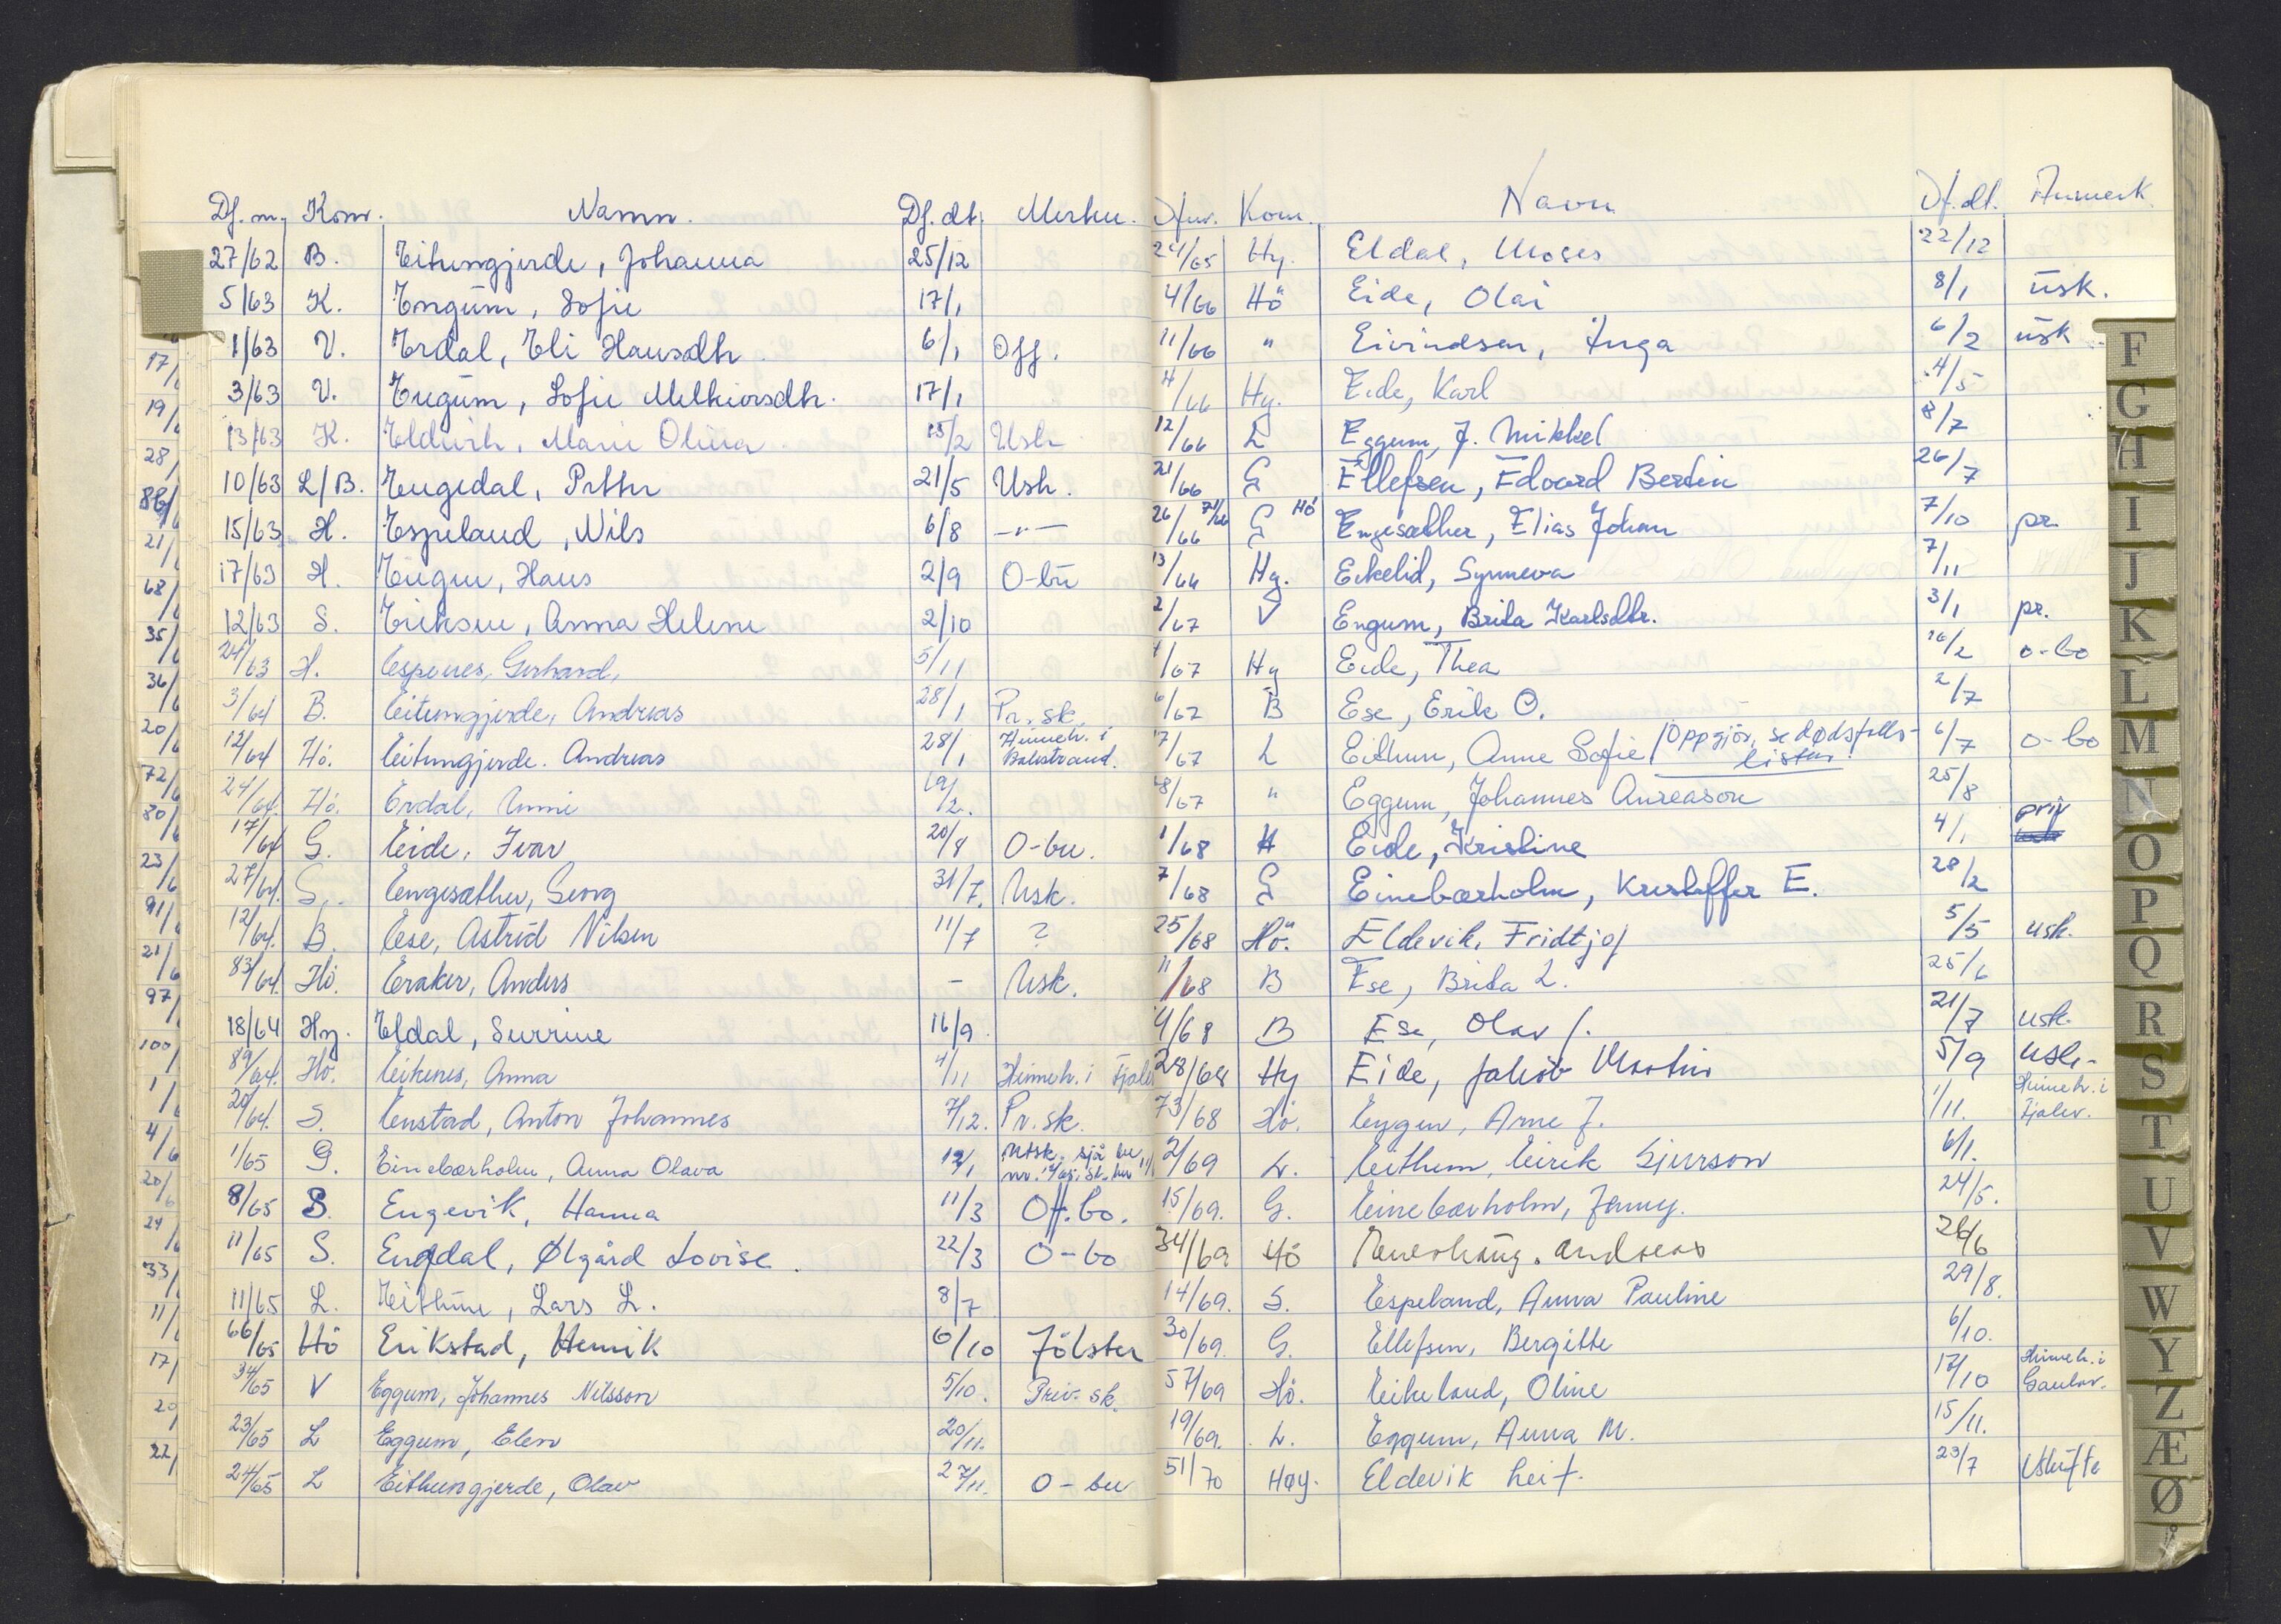 Df.nr. Kom. Namn. Df.dt. Merkn.
27/62 B. Eitungjerde, Johanna 25/12
5/63 K. Engum, Sofie 17/1
1/63 V. Erdal, Eli Hansdtr. 6/1 Off.
3/63 V. Engum, Sofie Melkiorsdtr. 17/1
13/63 K. Eldvik, Marie Olina 15/2 Usk
10/63 L/B. Engedal, Petter 21/5 Usk.
15/63 H. Espeland, Nils 6/8 —"—
17/63 H. Engen, Hans 2/9 O-bu
12/63 S. Eriksen, Anna Helene 2/10
24/63 H. Espenes, Gerhard, 5/11
3/64 B. Eitungjerde, Andreas 28/1 Pr. sk.
12/64 Hö. Eitungjerde. Andreas 28/1 Heimeh. i Balestrand.
24/64. Hö. Erdal, Unni 19/2.
17/64 G. Eide, Ivar 20/8 O-bu.
27/64. S. Engesæther, Georg 31/7. Usk.
12/64. B. Ese, Astrid Nilsen 11/7 ?
83/64. Hö. Eraker, Anders – Usk.
18/64 Hy. Eldal, Severine 16/9
89/64. Hö. Eikenes, Anna 4/11 Heimeh. i Fjaler
20/64. S. Enstad, Anton Johannes 7/12. Pr. sk.
1/65 G. Einebærholm, Anna Olava 12/1 Utsk. sjå
8/65 B. Engevik, Hanna 11/3 Off. bo.
11/65 S. Engdal, Ølgård Lovise. 22/3 O-bo
11/65 L. Eithun, Lars L. 8/7
66/65 Hö Erikstad, Henrik 6/10 Jölster
34/65 V Eggum, Johannes Nilsson 5/10. Priv. sk.
23/65 L Eggum, Elen 20/11.
24/65 L Eithungjerde, Olav 27/11. O-bu
Dfnr. Kom. Navn Df.dt. Anmerk.
24/65 Hy. Eldal, Moses 22/12
4/66 Hö Eide, Olai 8/1 usk.
11/66 " Eivindsen, Inga 6/2 usk
4/66 Hy. Eide, Karl 4/5
12/66 L Eggum, J. Mikkel 8/7
21/66 G Ellefsen, Edvard Bertin 26/7
26/66 71/66 G Hö Engesæther, Elias Johan 7/10 pr.
13/66 Hy. Eikelid, Synneva 7/11
2/67 V Engum, Brita Karlsdtr. 3/1 pr.
4/67 Hy Eide, Thea 16/2 o-bo
6/67 B Ese, Erik O. 2/7
17/67 L Eithun, Anne Sofie /Oppgjör, se dødsfalls- 6/7 o-bo
listen.
18/67 " Eggum, Johannes Anreason 25/8
1/68 H Eide, Kristine 4/1 priv
7/68 G Einebærholm, Kristoffer E. 28/2
25/68 Hö. Eldevik, Fridtjof 5/5 usk.
11/68 B Ese, Brita L. 25/6
9/68 B Ese, Olav J. 21/7 usk.
28/68 Hy Eide, Jakob Martin 5/9 usk.
73/68 Hö. Engen, Arne J. 1/11. Heimeh. i Fjaler.
2/69 L. Eithun, Eirik Sjurson 6/1.
15/69. G. Einebærholm, Jenny. 24/5.
34/69 Hö Andreas 26/6
14/69. S. Espeland, Anna Pauline 29/8.
30/69. G. Ellefsen, Bergitte 6/10.
57/69 Hö. Eikeland, Oline 17/10 Heimeh. i Gaular.
19/69. L. Eggum, Anna M. 15/11.
51/70 Høy. Eldevik Leif. 23/7 Uskifte
17/
19/
28/
86/
21/
68/
35/
36/
20/
72/
80/
23/
91/
21/
97/
100/
1/
4/
20/
24/
33/
11/
17/
20/
22/
F
G
H
I
J
K
L
M
N
O
P
Q
R
S
T
U
V
W
Y
Z
Æ
Ø